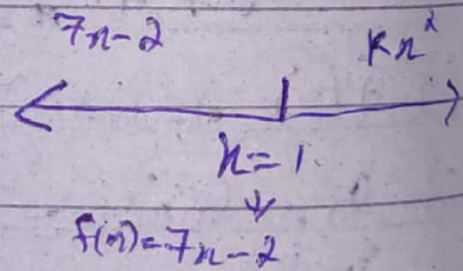 7x-2 kx²
x=1
f(x)=7x-2